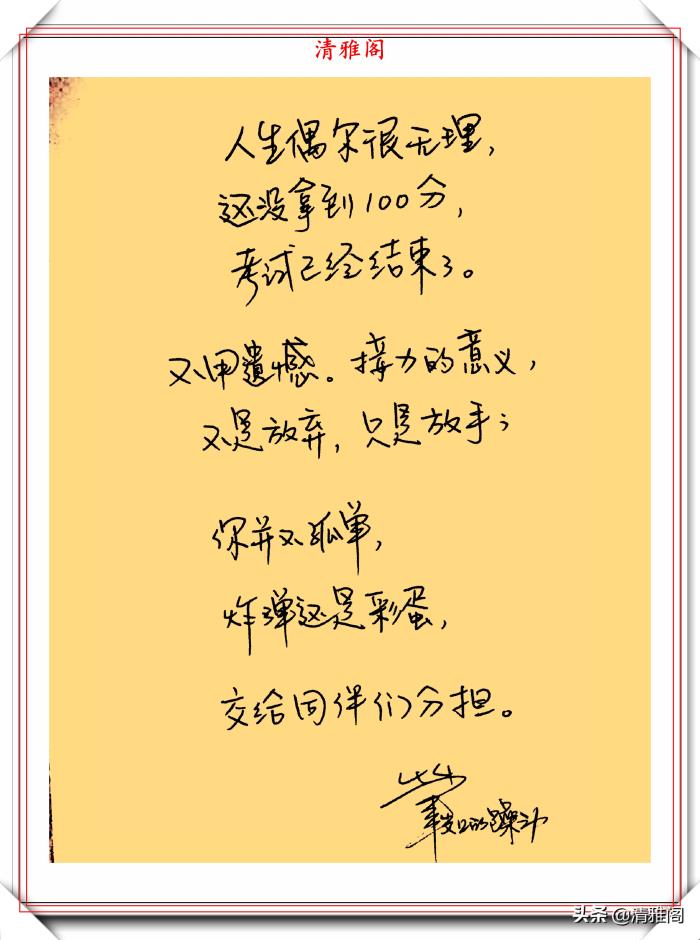 清雅阁
人生偶尔很无理，
还没拿到100分，
考试已经结束了。
不用遺憾。接力的意义，
不是放弃，只是放手；
你并不孤单，
炸弹还是彩蛋，
交给同伴们分担。
头条 @清雅阁